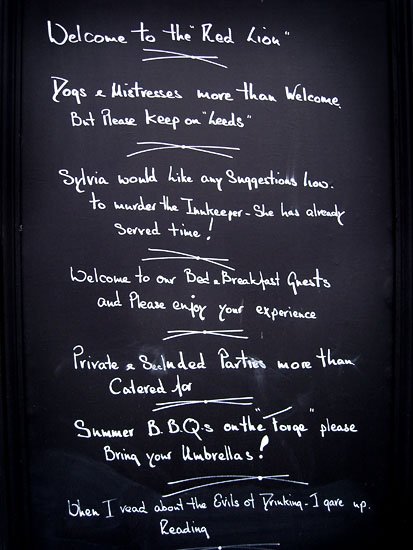 Welcome to the "Red Lion"
Dogs & Mistresses more than Welcome.
But Please keep on "Leeds"
Sylvia would like any Suggestions how.
to murder the Innkeeper - She has already
Served time!
Welcome to our Bed & Breakfast Guests
and Please enjoy your experience
Private & Secluded Parties more than
Catered for
Summer B.B.Q.s on the "Forge" please
Bring your Umbrellas!
When I read about the Evils of Drinking - I gave up.
Reading